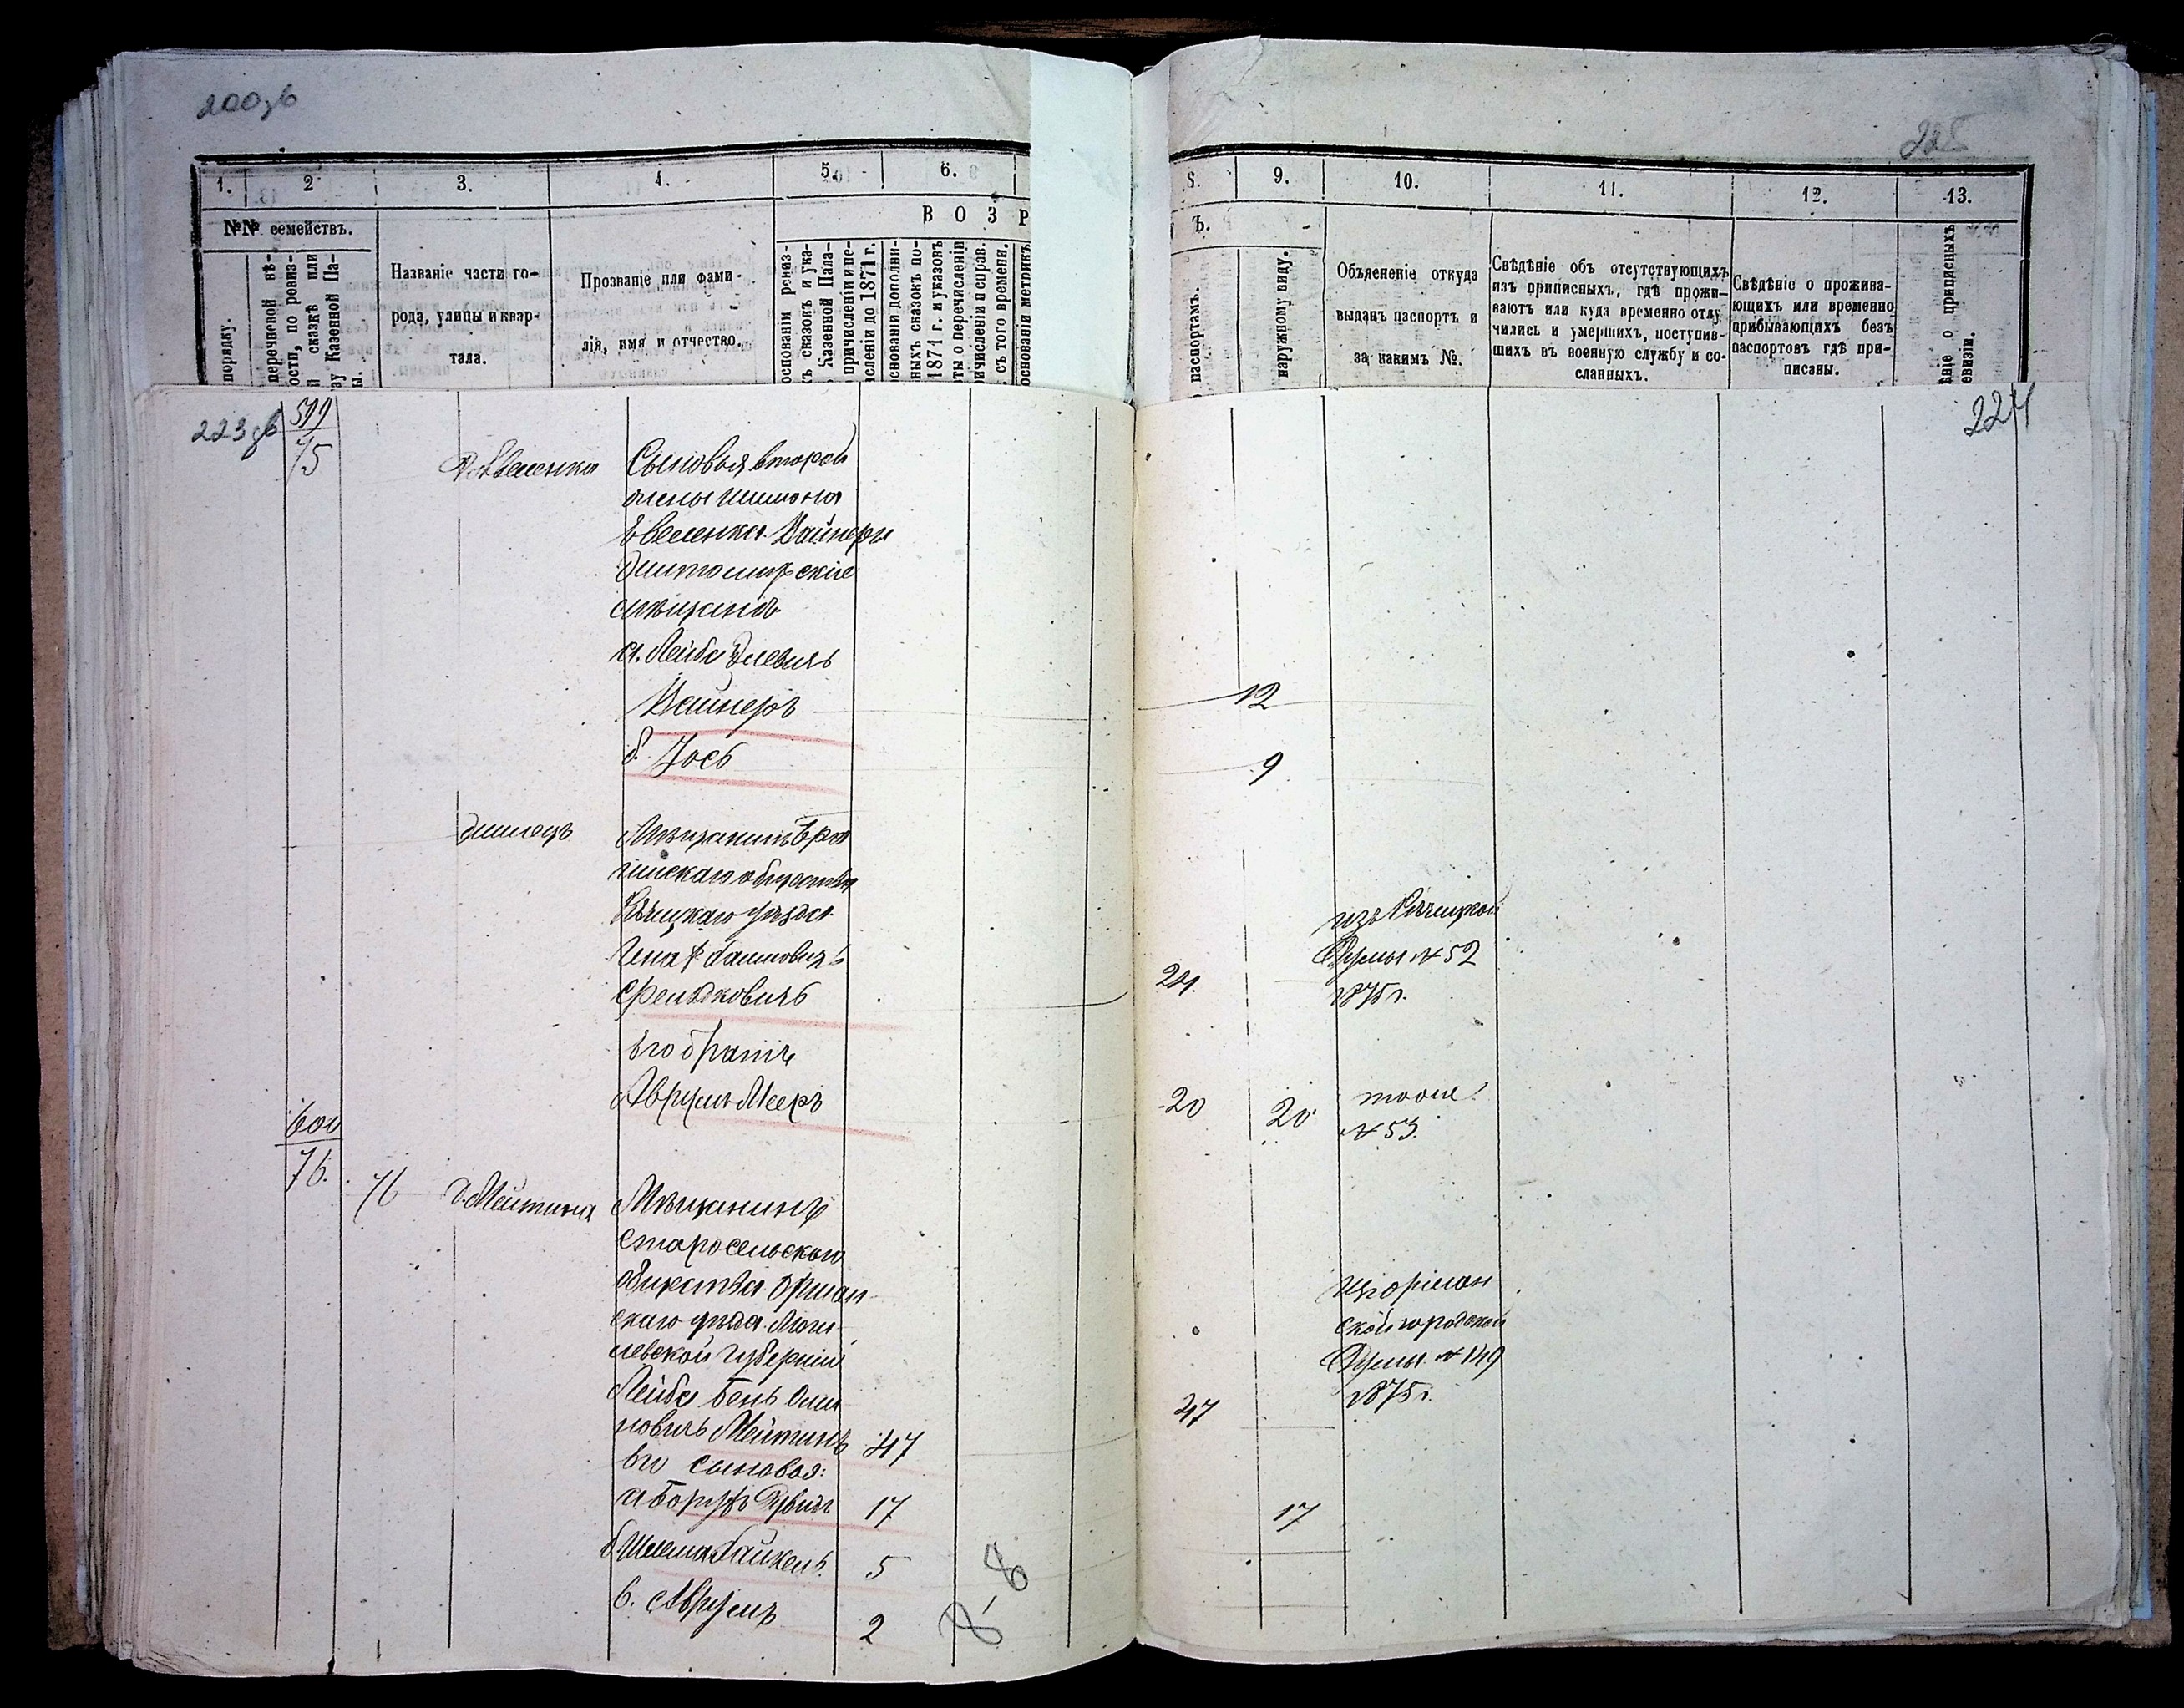 200 об
225
1. 2 3. 4. 5. 6.
8. 9. 10. 11. 12. 13.
№№ семействъ.
В О З Р
Ъ.
порядку.
перечневой вѣ-
ости, по ревиз-
й сказкѣ или
зу Казенной Па-
ы.
Названіе части го-
рода, улицы и квар-
тала.
Прозваніе или фами-
лія, имя и отчество.
основаніи ревиз-
хъ сказокъ и ука-
Казенной Пала-
причисленіи и пе-
исленіи до 1871 г.
основаніи дополни-
ныхъ сказокъ по-
1871 г. и указовъ
ты о перечисленіи
ичисленіи и справ.
съ того времени.
основаніи метрикъ
паспортамъ.
наружному виду.
Объясненіе откуда
выданъ паспортъ и
за какимъ №.
Свѣдѣніе объ отсутствующихъ
изъ приписныхъ, гдѣ прожи-
ваютъ или куда временно отлу-
чились и умершихъ, поступив-
шихъ въ военную службу и со-
сланныхъ.
Свѣдѣніе о прожива-
ющихъ или временно
прибывающихъ безъ
паспортовъ гдѣ при-
писаны.
ѣніе о приписныхъ
евизіи.
223 об
224
599
75
Сыновья второй
жены Шимона
Евеленка Вайнеры
Житомирскіе
мѣщане
а. Лейба Элевичъ
Вайнеръ 12
б. Іось 9
Мѣщанинъ Бра
гинскаго общества
Рѣчицкаго уѣзда
Фельдковичъ 24.
изъ Рѣчицкой
Думы № 52
1875 г.
Его братъ
Аврумъ Мееръ 20 20
тоже
№ 53.
600
76. 76 д. Мейтина
Мѣщанинъ
Старосельскаго
общества Оршан
скаго уѣзда Моги
левской губерніи
Лейба Бень
новичъ Мейтинъ 47 47
изъ Оршан
ской городской
Думы № 149
1875 г.
Его сыновья:
а Борухъ Рувимъ 17 17
б. Шлема Файкель 5
в. Аврумъ 2
8-8